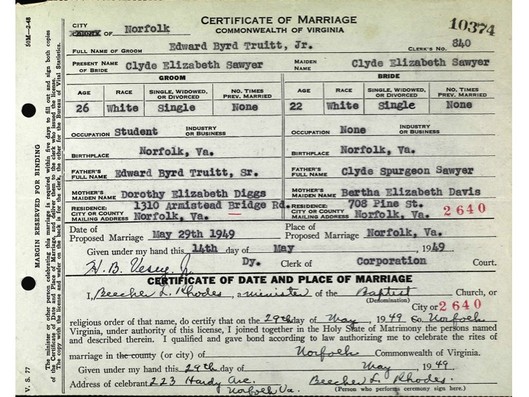 CERTIFICATE OF MARRIAGE
COMMONWEALTH OF VIRGINIA
10374
CITY OF Norfolk
CLERK'S NO. 840
FULL NAME OF GROOM Edward Byrd Truitt, Jr.
PRESENT NAME OF BRIDE Clyde Elizabeth Sawyer MAIDEN NAME Clyde Elizabeth Sawyer
GROOM BRIDE
AGE RACE SINGLE, WIDOWED, OR DIVORCED NO. TIMES PREV. MARRIED AGE RACE SINGLE, WIDOWED, OR DIVORCED NO. TIMES PREV. MARRIED
26 White Single None 22 White Single None
OCCUPATION Student INDUSTRY OR BUSINESS OCCUPATION None INDUSTRY OR BUSINESS
BIRTHPLACE Norfolk, Va. BIRTHPLACE Norfolk, Va.
FATHER'S FULL NAME Edward Byrd Truitt, Sr. FATHER'S FULL NAME Clyde Spurgeon Sawyer
MOTHER'S MAIDEN NAME Dorothy Elizabeth Diggs MOTHER'S MAIDEN NAME Bertha Elizabeth Davis
RESIDENCE: CITY OR COUNTY MAILING ADDRESS 1310 Armistead Bridge Rd. Norfolk, Va. RESIDENCE: CITY OR COUNTY MAILING ADDRESS 708 Pine St. Norfolk, Va. 2640
Date of Proposed Marriage May 29th 1949 Place of Proposed Marriage Norfolk, Va.
Given under my hand this 14th day of May 1949
H. B. Vesey Jr. Dy. Clerk of Corporation Court.
CERTIFICATE OF DATE AND PLACE OF MARRIAGE
I, Beecher L. Rhodes, a minister of the Baptist Church, or
(Denomination)
City or 2640
religious order of that name, do certify that on the 29th day of May 1949 Norfolk
Virginia, under authority of this license, I joined together in the Holy State of Matrimony the persons named
and described therein. I qualified and gave bond according to law authorizing me to celebrate the rites of
marriage in the county (or city) of Norfolk Commonwealth of Virginia.
Given under my hand this 29th day of May 1949.
Address of celebrant 223 Hardy Ave. Beecher L. Rhodes.
Norfolk Va. (Person who performs ceremony sign here.)
MARGIN RESERVED FOR BINDING
V. S. 77